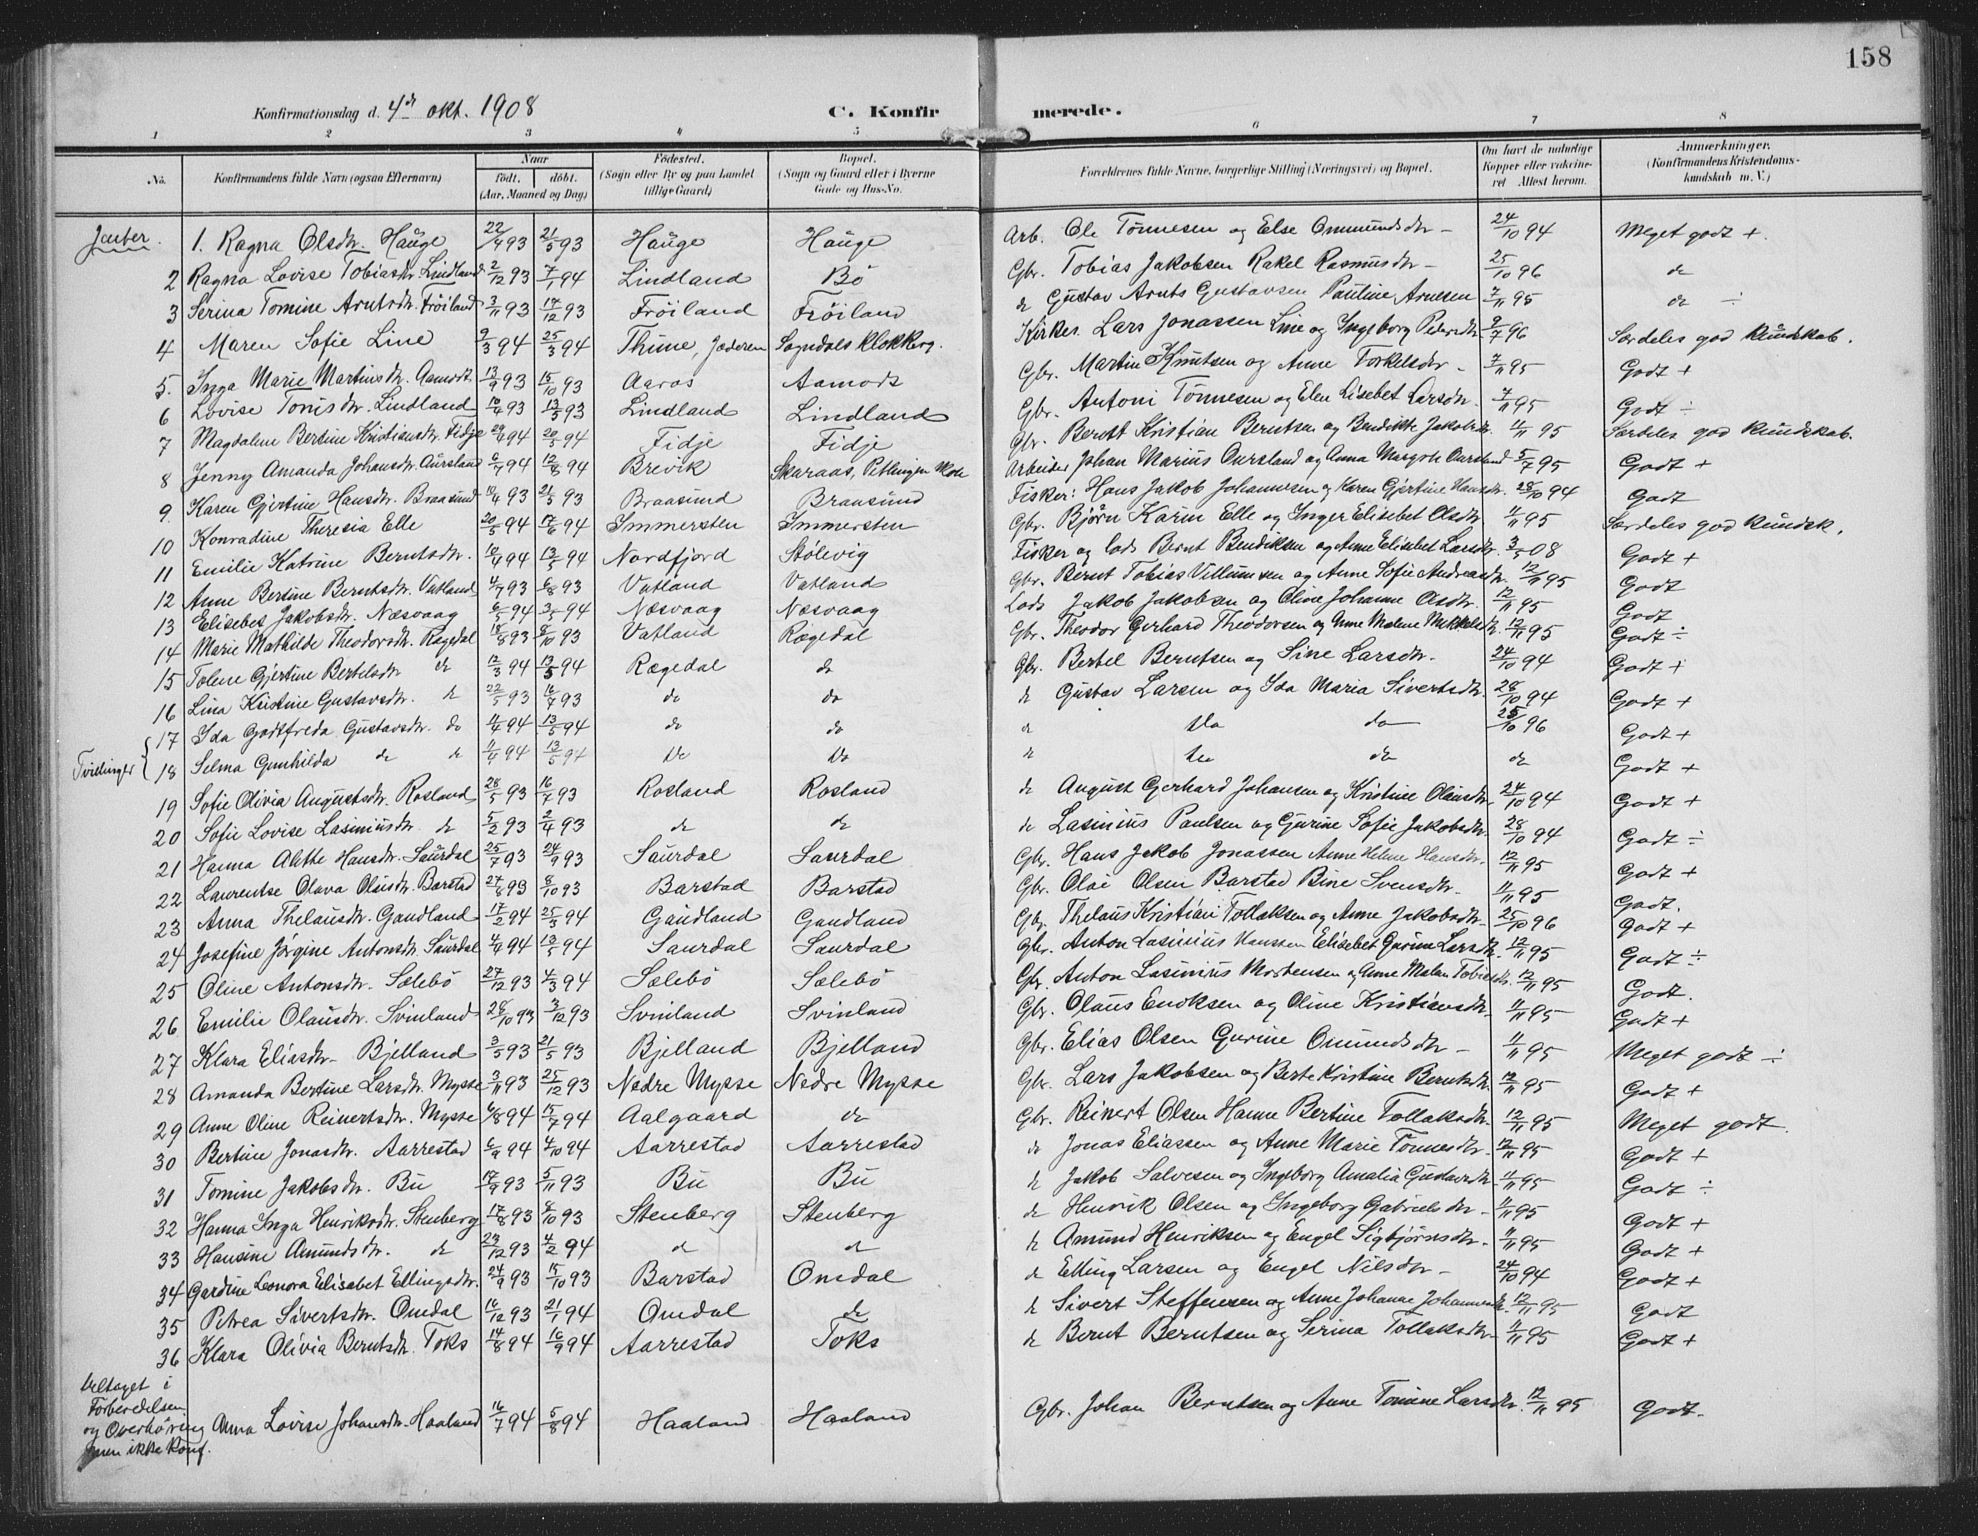 158
Konfirmationsdag d. 4de okt. 1908 C. Konfirmerede.
1 2 3 4 5 6 7 8
No. Konfirmandens fulde Navn (ogsaa Efternavn) Naar født. døbt. (Aar, Maaned og Dag) Fødested. (Sogn eller By og paa Landet tillige Gaard) Bopæl. (Sogn og Gaard eller i Byerne Gade og Hus-No. Forældrenes fulde Navne, borgerlige Stilling (Næringsvei) og Bopæl. Om havt de naturlige Kopper eller vakcineret Attest herom. Anmærkninger. (Konfirmandens Kristendomskundskab m. V.)
Jenter. 1. Ragna Olsdtr. Hauge 22/4 93 21/5 93 Hauge Hauge Arb. Ole Tönnesen og Else Ommundsdtr 24/10 94 Meget godt +
2 Ragna Lovise Tobiasdtr. Lindland 2/12 93 7/1 94 Lindland Bö Gbr. Tobias Jakobsen Rakel Rasmusdtr 25/10 96 do
3 Serina Tomine Arntsdtr. Fröiland 3/11 93 17/12 93 Fröiland Fröiland do Gustav Arnts Gustavsen Pauline Arnesen 7/11 95 do ÷
4 Maren Sofie Line 9/3 94 25/3 94 Thime, Jæderen Sogndals Klokkerg. Kirkes. Lars Jonassen Line og Ingeborg Pedersdtr 9/7 96 Særdeles god kundskab.
5. Inga Marie Martinsdtr. Aamodt 13/9 93 15/10 93 Aaros Aamodt Gbr. Martin Knutsen og Anne Torkelsdtr 7/11 95 Godt +
6 Lovise Tonisdtr. Lindland 10/4 93 13/5 93 Lindland Lindland Gbr. Antoni Tönnesen og Elen Lisebet Larsdtr. 7/11 95 Godt ÷
7 Magdalene Bertine Kristiansdtr. Fidje 29/4 94 20/5 94 Fidje Fidje Gbr. Berntt Kristian Berntsen og Bendikte Jakobsdtr 11/11 95 Særdeles god kundskab.
8 Jenny Amanda Johansdtr. Aursland 6/7 94 12/8 94 Brevik Skaraas, Arbeider Johan Marius Aursland og Anna Margrete Aursland 5/7 95 Godt +
9. Karen Gjertine Hansdtr. Braasund 10/4 93 21/5 93 Braasund Braasund Fisker: Hans Jakob Johannesen og Karen Gjertine Hansdtr. 28/10 94 Godt
10 Konradine Theresia Elle 20/5 94 17/6 94 Immersten Immersten Gbr. Bjørn Karin Elle og Inger Elisebet Olsdtr 11/11 95 Særdeles god kundsk.
11 Emilie Katrine Berntsdtr. 10/4 94 13/5 94 Nordfjord Stølevig Fisker og lods Bernt Bendiksen og Anne Elisebet Larsdtr. 3/5 08 Godt +
12 Anne Bertine Berntsdtr. Vatland 4/7 93 6/8 93 Vatland Vatland Gbr. Bernt Tobias Villumsen og Anne Sofie Andreasdtr. 12/11 95 Godt
13 Elisebet Jakobsdtr. Næsvaag 6/5 94 3/5 94 Næsvaag Næsvaag Lods Jakob Jakobsen og Oline Johanne Olsdtr. 12/11 95 Godt
14 Marie Mathilde Theodorsdtr. Rægedal 18/8 93 8/10 93 Vatland Rægedal Gbr. Theodor Gerhard Theodorsen og Anne Malene Mikkelsdtr. 12/11 95 Godt ÷
15 Tolene Gjertine Bertelsdtr do 12/3 94 13/5 94 Rægedal do Gbr. Bertel Berntsen og Sine Larsdtr. 24/10 94 Godt +
16 Lina Kristine Gustavsdtr. do 22/5 93 16/7 93 do do do Gustav Larsen og Ida Maria Sivertsdtr. 28/10 94 Godt +
17 Ida Godtfreda Gustavsdtr. do 11/4 94 13/5 94 do do do do do 25/10 96 Godt +
Tvillinger { 18 Selma Gunhilda do do 11/4 94 13/5 94 do do do do do do Godt +
19 Sofie Olivia Augustsdtr. Rosland 28/5 93 16/7 93 Rosland Rosland do August Gerhard Johansen og Kristine Olausdtr. 24/10 94 Godt +
20 Sofie Lovise Lasiniusdtr. do 5/2 93 2/4 93 do do do Lasinius Paulsen og Gurine Sofie Jakobsdtr. 28/10 94 Godt ÷
21 Hanna Alethe Hansdtr. Saurdal 25/7 93 24/9 93 Saurdal Saurdal Gbr. Hans Jakob Jonassen Anne Helene Hansdtr. 12/11 95 Godt +
22 Laurentse Olava Olaisdtr. Barstad 27/8 93 8/10 93 Barstad Barstad Gbr. Olae Olsen Barstad Bine Svensdtr. 11/11 95 Godt.
23 Anna Thelausdtr. Gandland 17/2 94 25/3 94 Gaudland Gaudland Gbr. Thelaus Kristian Tollaksen og Anne Jakobsdtr. 25/10 96 Godt +
24 Josefine Jørgine Antonsdtr. Saurdal 4/4 94 13/5 94 Saurdal Saurdal Gbr. Anton Lasinius Hanssen Elisebet Gurine Larsdtr. 12/11 95 Godt ÷
25 Oline Antonsdtr. Sælebö 27/12 93 4/3 94 Sælebö Sælebö Gbr. Anton Lasinius Mortensen og Anne Malen Tobiasdtr. 12/11 95 Godt.
26 Emilie Olausdtr. Svinland 28/10 93 3/12 93 Svinland Svinland Gbr. Olaus Enoksen og Oline Kristiansdtr. 11/11 95 Godt +
27 Klara Eliasdtr. Bjelland 3/5 93 21/5 93 Bjelland Bjelland Gbr. Elias Olsen Gurine Omundsdtr 11/11 95 Meget godt ÷
28 Amanda Bertine Larsdtr. Mysse 3/11 93 25/12 93 Nedre Mysse Nedre Mysse Gbr. Lars Jakobsen og Berte Kristine Berntsdtr. 12/11 95 Godt +
29 Anne Oline Reinertsdtr. Mysse 6/8 94 15/7 94 Aalgaard do Gbr. Reinert Olsen Hanne Bertine Tollaksdtr. 12/11 95 Meget godt.
30 Bertine Jonasdtr. Aarrestad 6/9 94 4/10 94 Aarrestad Aarrestad do Jonas Eliassen og Anne Marie Tönnesdtr. 12/11 95 Godt +
31 Tomine Jakobsdtr. Bu 17/9 93 5/11 93 Bu Bu do Jakob Salvesen og Ingeborg Amalia Gustavsdtr. 11/11 95 Godt ÷
32 Hanna Inga Henriksdtr. Stenberg 17/8 93 8/10 93 Stenberg Stenberg do Henrik Olsen og Ingeborg Gabrielsdtr. 11/11 95 Godt +
33 Hansine Amundsdtr. do 23/12 93 4/2 94 do do do Amund Henriksen og Engel Sigbjørnsdtr. 11/11 95 Godt +
34 Gardine Leonora Elisabet Ellingsdtr. 24/9 93 15/10 93 Barstad Omdal do Elling Larsen og Engel Nilsdtr 24/10 94 Godt +
35 Petrea Sivertsdtr. Omdal 16/12 93 21/1 94 Omdal do do Sivert Steffensen og Anne Johanne Johannesdtr. 12/11 95 Godt
36 Klara Olivia Berntsdtr. Toks 14/8 94 16/9 94 Aarrestad Toks do Bernt Berntsen og Serina Tollaksdtr 11/11 95 Godt +
Deltaget i
Forberedelsen
og Overhøring Anna Lovise Johansdtr. Haaland 16/7 94 5/8 94 Haaland Haaland Gbr. Johan Berntsen og Anne Tomine Larsdtr. 12/11 95 Godt.
men ikke konf.